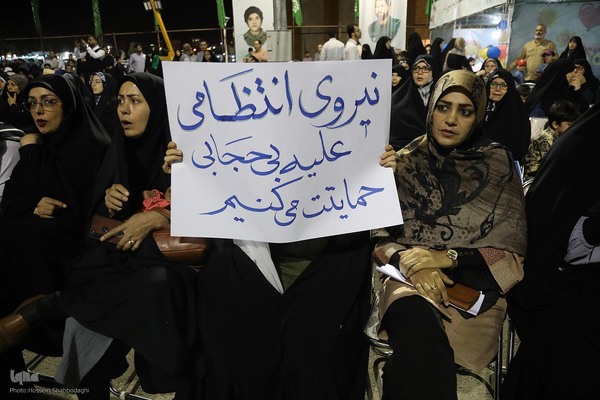 نیروی انتظامی
علیه بی حجابی
حمایتت می کنیم
iqna
Photo: Hossein Shahbodaghi